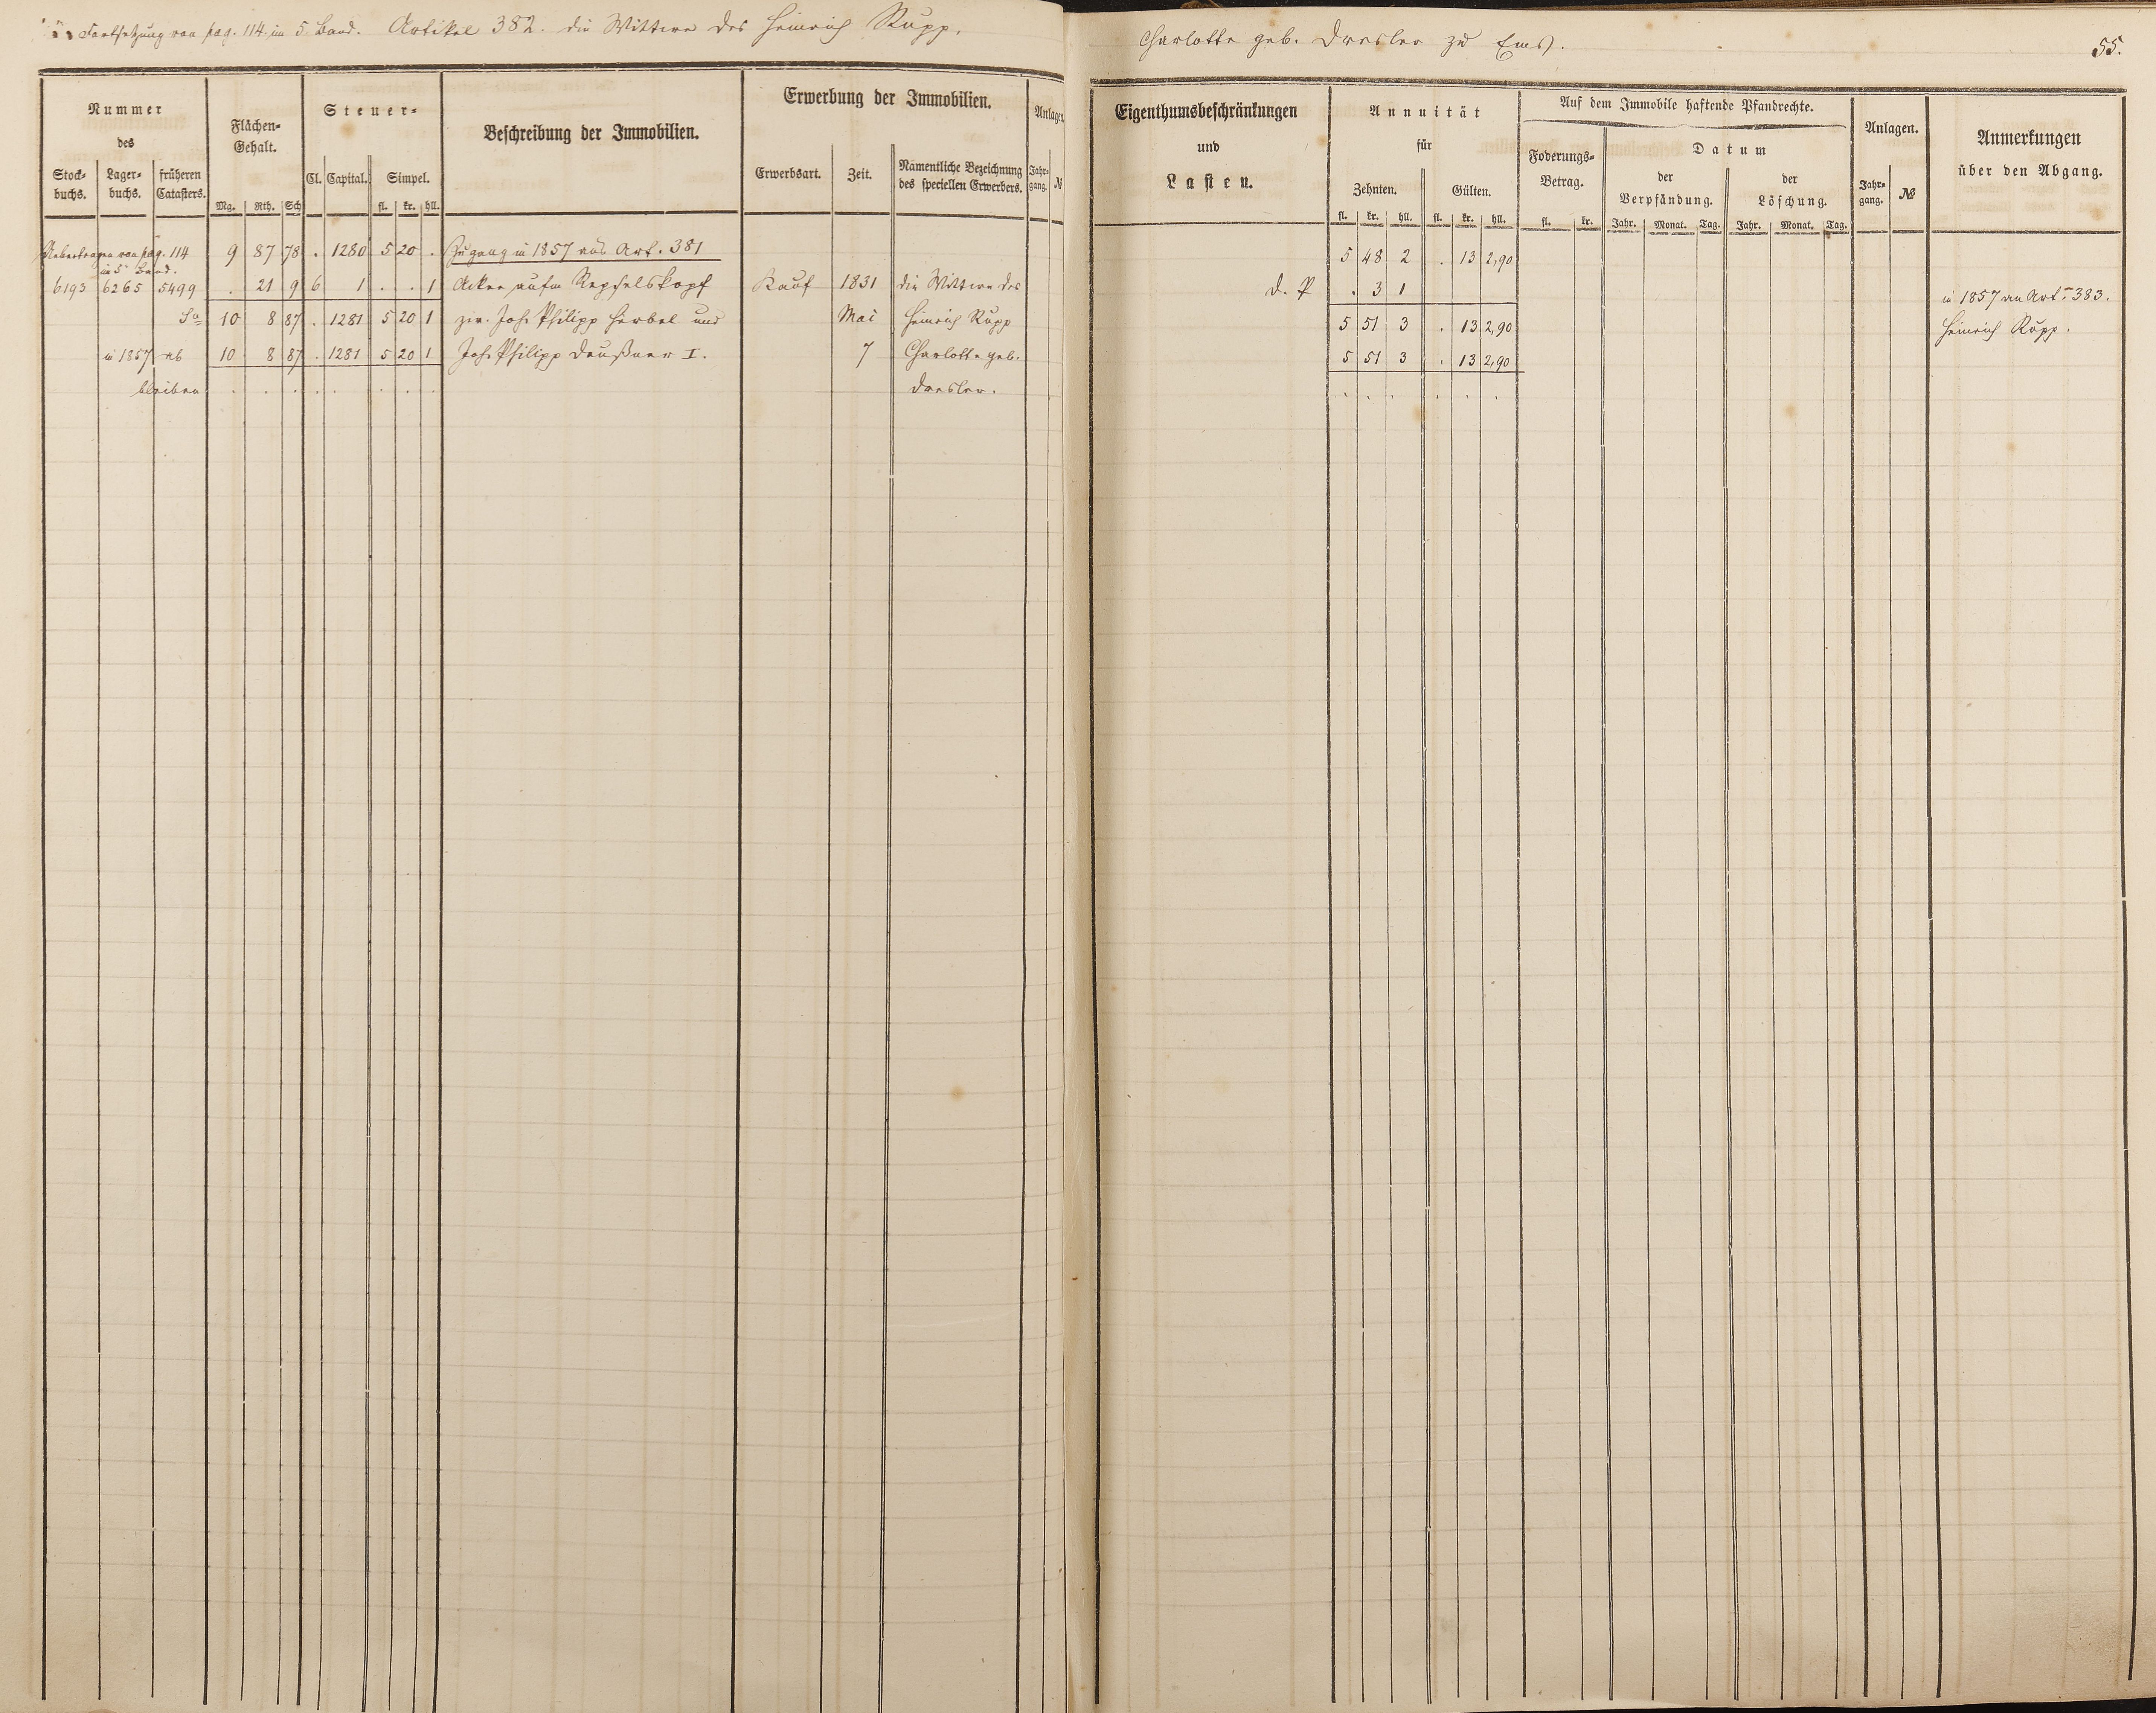 Fortsetzung von pag. 114. im 5. Band. Artikel 382. die Wittwe des Heinrich Rupp,
Charlotte geb. Dresler zu Ems.
55.
Nummer
des
Stock-
buchs.
Lager-
buchs.
früheren
Catasters.
Flächen-
Gehalt.
Mg. Rth. Sch
Steuer-
Cl. Capital. Simpel.
fl. kr. hll.
Beschreibung der Immobilien.
Erwerbung der Immobilien.
Erwerbsart. Zeit. Namentliche Bezeichnung
des speciellen Erwerbers.
Anlagen
Jahr-
gang. №
Eigenthumsbeschränkungen
und
Lasten.
Annuität
für
Zehnten. Gülten.
fl. kr. hll. fl. kr. hll.
Auf dem Immobile haftende Pfandrechte.
Foderungs-
Betrag.
fl. kr.
Datum
der
Verpfändung.
Jahr. Monat. Tag.
der
Löschung.
Jahr. Monat. Tag.
Anlagen.
Jahr-
gang. №
Anmerkungen
über den Abgang.
Uebertragen von pag. 114 9 87 78 . 1280 5 20 . Zugang in 1857 aus Art. 381 5 48 2 . 13 2,90
im 5n Band.
6193 6265 5499 . 21 9 6 1 . . 1 Acker aufm Kauf 1831 die Wittwe des d. P . 3 1 in 1857 an Art. 383.
Sa 10 8 87 . 1281 5 20 1 zw. Joh. Philipp Herbel und Mai Heinrich Rupp 5 51 3 . 13 2,90 Heinrich Rupp.
in 1857 ab 10 8 87 . 1281 5 20 1 Joh. Philipp Deußner I. 7 Charlotte geb. 5 51 3 . 13 2,90
bleiben . . . . . . . . Dresler. . . . . . .